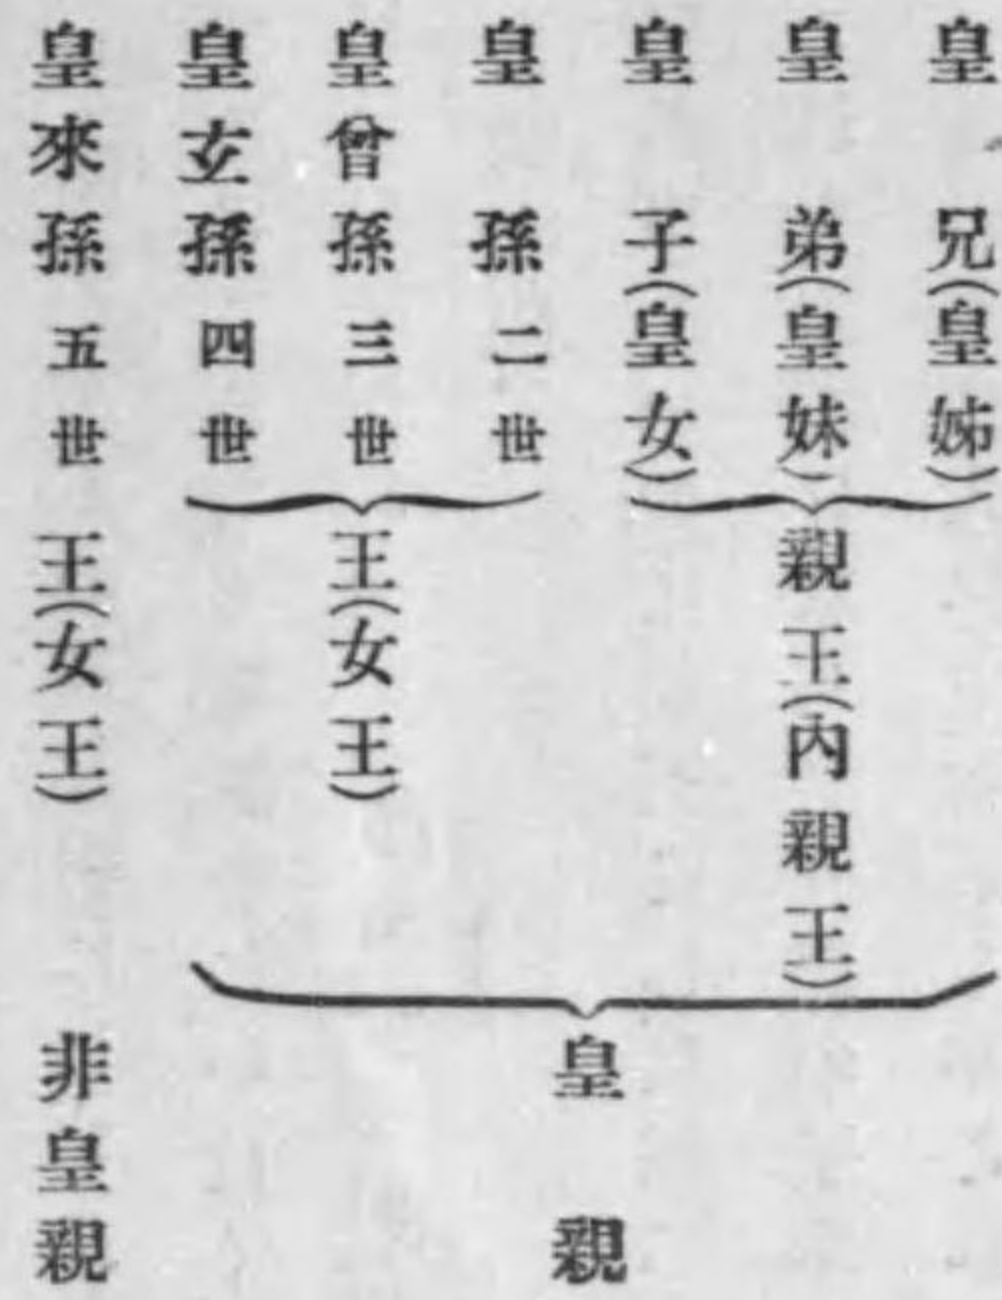 皇兄(皇姊)
皇弟(皇妹)
皇子(皇女)
親王(內親王)
皇孫二世
皇曾孫三世
皇玄孫四世
王(女王)
皇親
皇來孫五世王(女王)非皇親